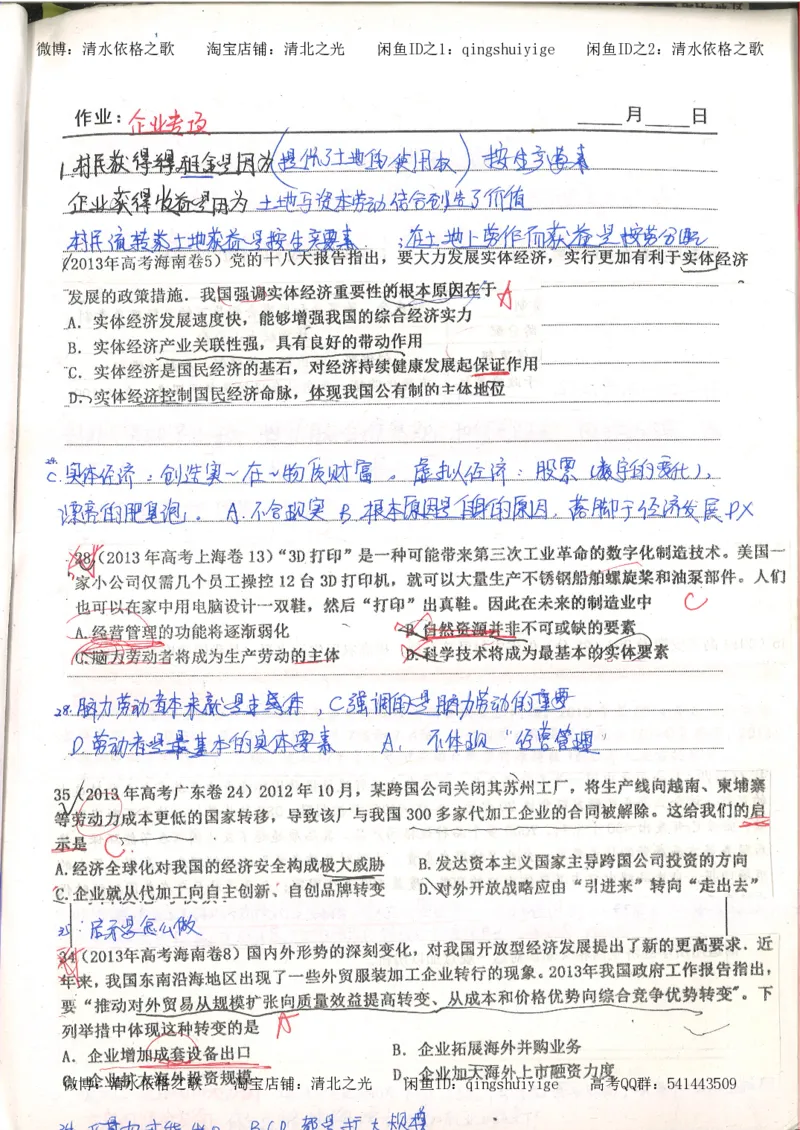 微博：清水依格之歌 淘宝店铺：清北之光 闲鱼ID之1：qingshuiyige 闲鱼ID之2：清水依格之歌
作业：企业专项 ___月___日
1.村民获得得租金是因为(提供了土地的使用权) 按生产要素
企业获得收益是因为 土地与资本劳动结合创造了价值
村民流转类土地获益是按生产要素 ；在土地上劳作而获益是按劳分配
(2013年高考海南卷5）党的十八大报告指出，要大力发展实体经济，实行更加有利于实体经济
发展的政策措施．我国强调实体经济重要性的根本原因在于 A
A．实体经济发展速度快，能够增强我国的综合经济实力
B．实体经济产业关联性强，具有良好的带动作用
C．实体经济是国民经济的基石，对经济持续健康发展起保证作用
D、实体经济控制国民经济命脉，体现我国公有制的主体地位
C.实体经济：创造实~在~物质财富。虚拟经济：股票（数字的变化），
漂亮的肥皂泡。 A.不合现实 B.根本原因是自身的原因，落脚于经济发展 D×
38（2013年高考上海卷13）“3D打印”是一种可能带来第三次工业革命的数字化制造技术。美国一
家小公司仅需几个员工操控12台3D打印机，就可以大量生产不锈钢船舶螺旋桨和油泵部件。人们
也可以在家中用电脑设计一双鞋，然后“打印”出真鞋。因此在未来的制造业中 C
A.经营管理的功能将逐渐弱化 B.自然资源并非不可或缺的要素
C.脑力劳动者将成为生产劳动的主体 D.科学技术将成为最基本的实体要素
28.脑力劳动者本来就是主体，C强调的是脑力劳动的重要
D.劳动者是最基本的实体要素 A. 不体现“经营管理”
35（2013年高考广东卷24）2012年10月，某跨国公司关闭其苏州工厂，将生产线向越南、柬埔寨
等劳动力成本更低的国家转移，导致该厂与我国300多家代加工企业的合同被解除。这给我们的启
示是 C
A.经济全球化对我国的经济安全构成极大威胁 B.发达资本主义国家主导跨国公司投资的方向
C.企业就从代加工向自主创新、自创品牌转变 D.对外开放战略应由“引进来”转向“走出去”
35.启示是怎么做
34（2013年高考海南卷8）国内外形势的深刻变化，对我国开放型经济发展提出了新的更高要求．近
年来，我国东南沿海地区出现了一些外贸服装加工企业转行的现象。2013年我国政府工作报告指出，
要“推动对外贸易从规模扩张向质量效益提高转变、从成本和价格优势向综合竞争优势转变”。下
列举措中体现这种转变的是 A
A．企业增加成套设备出口 B．企业拓展海外并购业务
C．企业扩大海外投资规模 D．企业加大海外上市融资力度
微博：清水依格之歌 淘宝店铺：清北之光 闲鱼ID：qingshuiyige 高考QQ群：541443509
BCD都是扩大规模